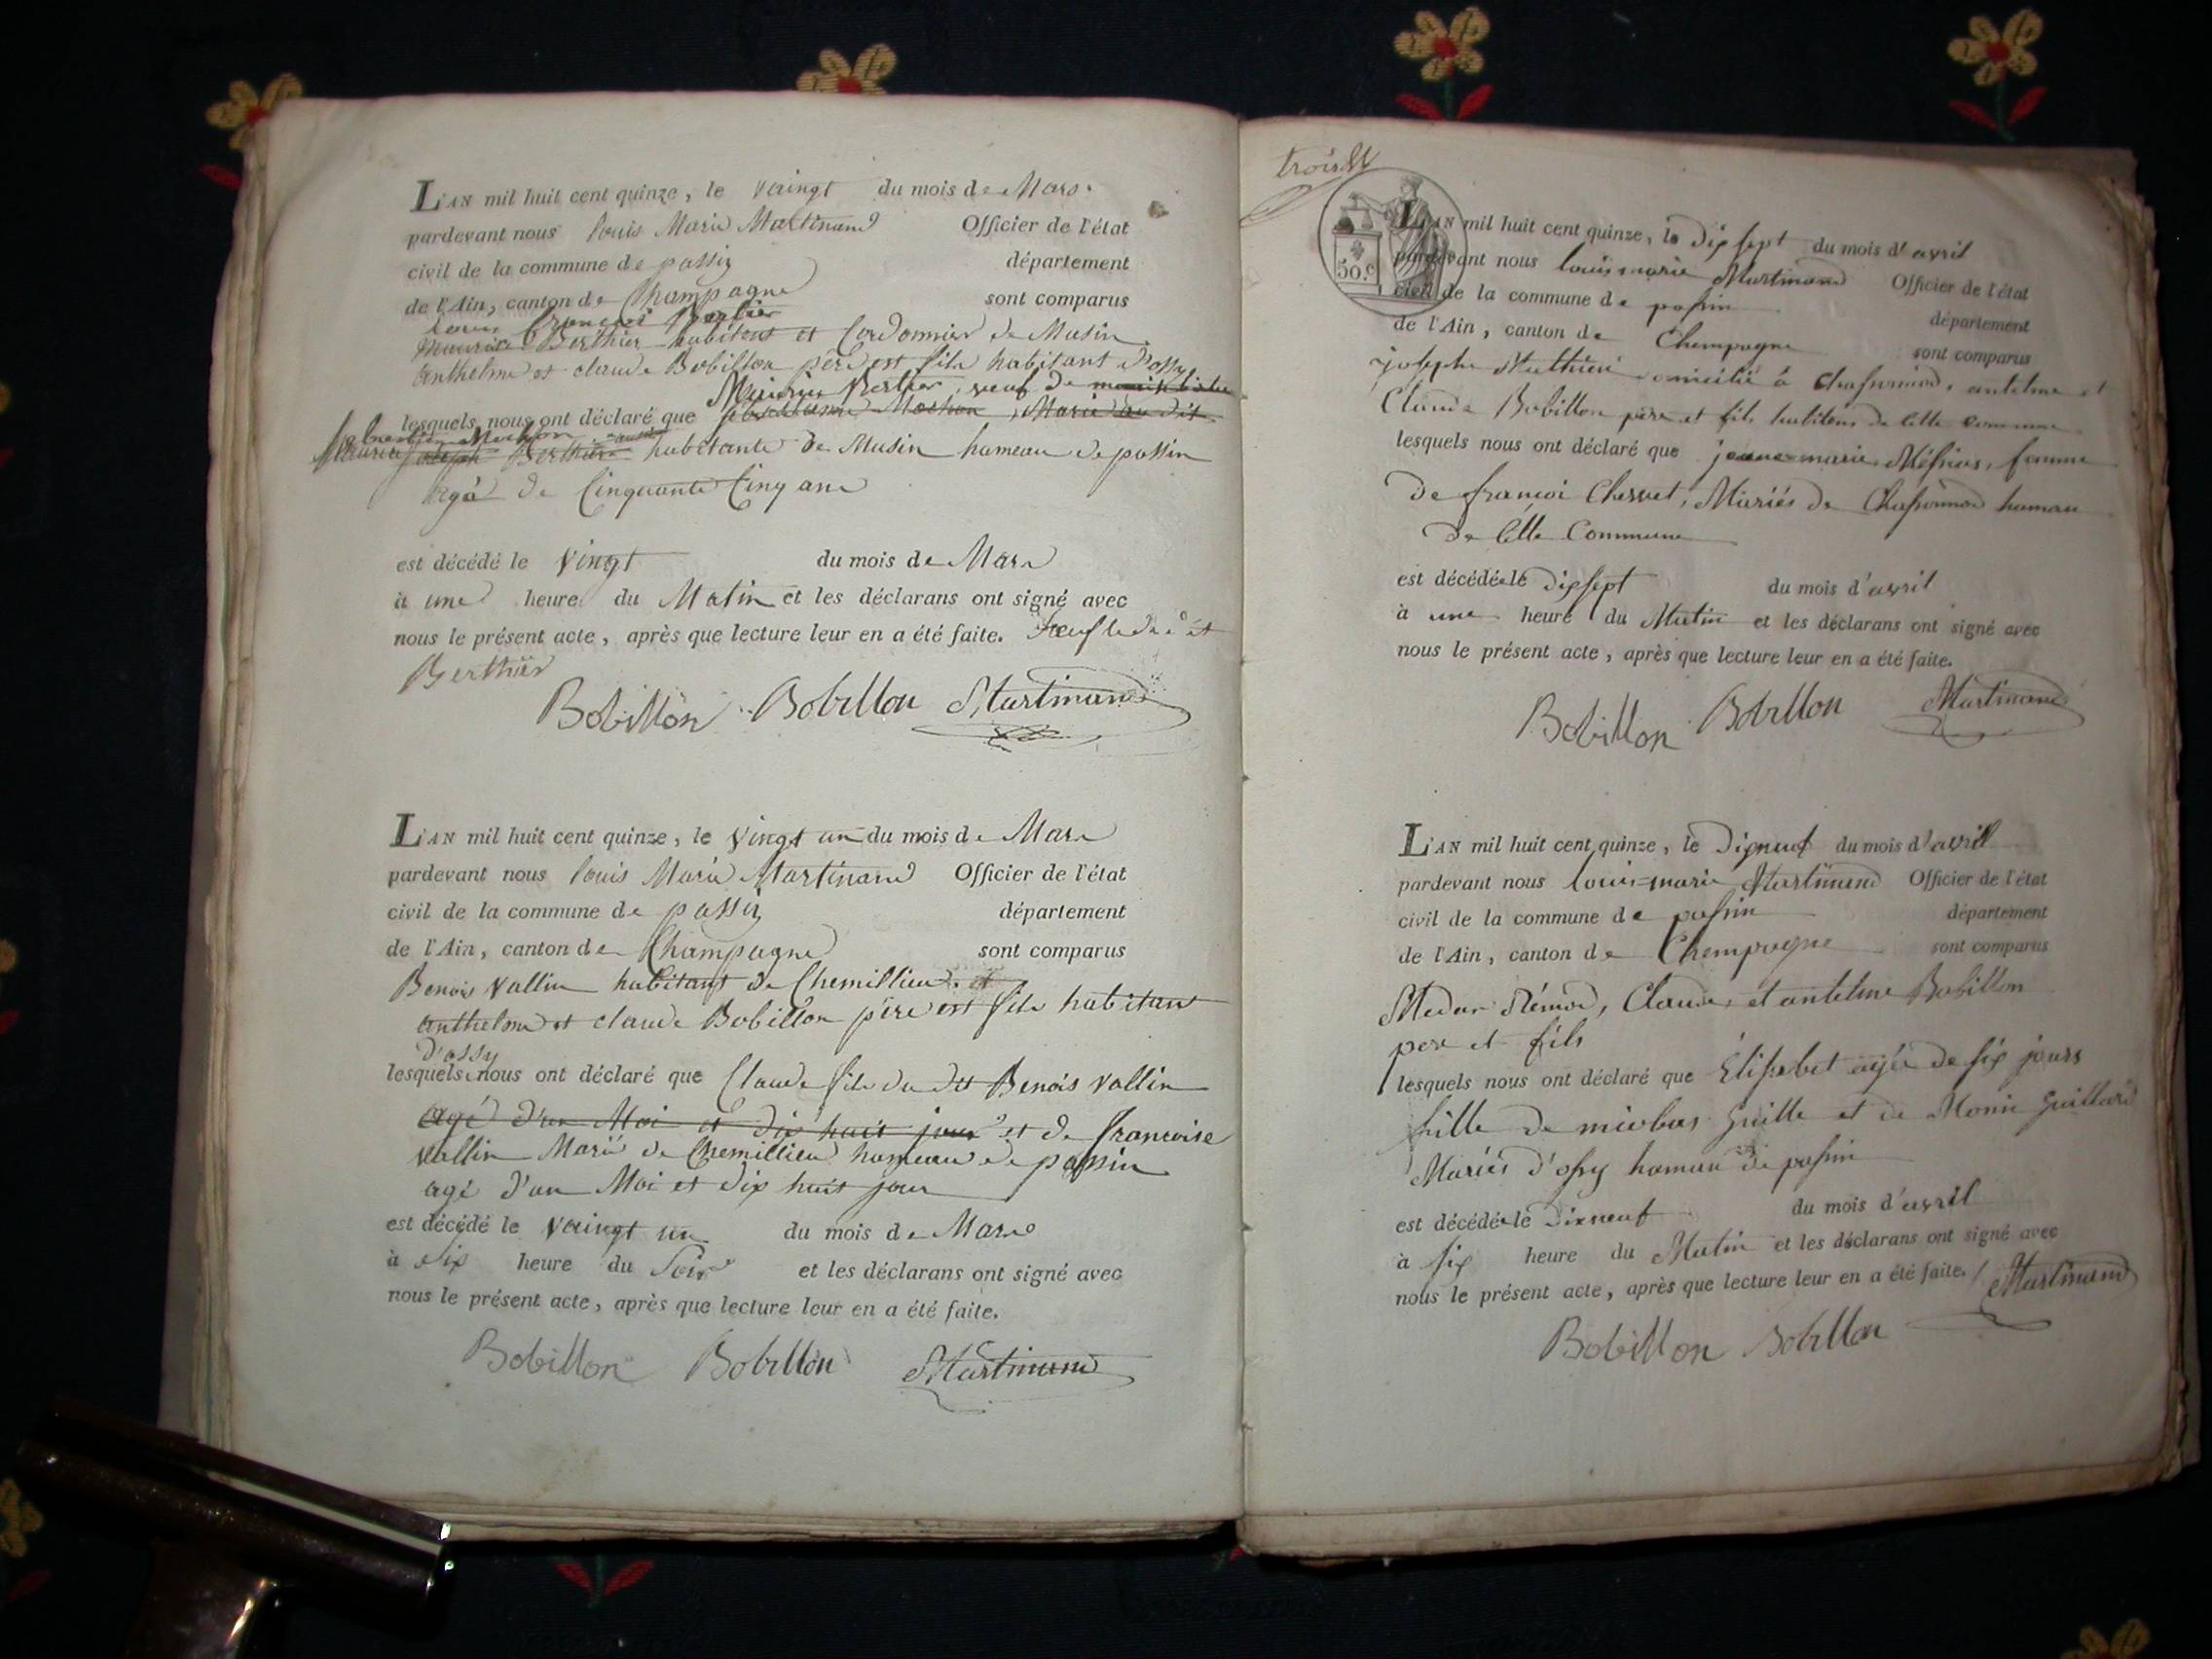 L'AN mil huit cent quinze, le vaingt du mois de Mars
pardevant nous louis Marie Martinand Officier de l'état
civil de la commune de passin département
de l'Ain, canton de Champagne sont comparus
Louis François Bertier
Maurice Berthier habitant et Cordonnier de Musin
anthelme et claude Bobillon père est fils habitant d'ossy
Maurice Bertier, veuf de
lesquels nous ont déclaré que Mochon, Marie au dit
Mochon
Maurice joseph Berthier habitante de Musin hameau de passin
agé de Cinquante Cinq ans
est décédé le Vingt du mois de Mars
à une heure du Matin et les déclarans ont signé avec
nous le présent acte, après que lecture leur en a été faite.
Berthier
Bobillon Bobillon Martinand
L'AN mil huit cent quinze, le Vingt un du mois de Mars
pardevant nous louis Marie Martinand Officier de l'état
civil de la commune de passin département
de l'Ain, canton de Champagne sont comparus
Benois Vallin habitant de Chemillieu et
anthelme et claude Bobillon père est fils habitan
d'ossy
lesquels nous ont déclaré que Claude fils du dit Benois Vallin
agé d'un Moi et dix huit jour et de francoise
Vallin Marié de Chemillieu hameau de passin
agé d'un Moi et dix huit jour
est décédé le Vaingt un du mois de Mars
à six heure du Soir et les déclarans ont signé avec
nous le présent acte, après que lecture leur en a été faite.
Bobillon Bobillon Martinand
trois
50.c
L'AN mil huit cent quinze, le dix sept du mois d'avril
pardevant nous louis marie Martinand Officier de l'état
civil de la commune de passin département
de l'Ain, canton de Champagne sont comparus
josephe Mathieu domicilié à antelme et
Claude Bobillon père et fils habitans de cette commune
lesquels nous ont déclaré que jeanne marie femme
de françoi Chervet, Mariés de hameau
de Cette Commune
est décédée le dix sept du mois d'avril
à une heure du Matin et les déclarans ont signé avec
nous le présent acte, après que lecture leur en a été faite.
Bobillon Bobillon Martinand
L'AN mil huit cent quinze, le dixneuf du mois d'avril
pardevant nous louis-marie Martinand Officier de l'état
civil de la commune de passin département
de l'Ain, canton de Champagne sont comparus
Medar Rémond, Claude, et antelme Bobillon
pere et fils
lesquels nous ont déclaré que Élisabet agée de six jours
fille de nicolas Guille et de Monie Guillard
Mariés d'ossy hamau de passin
est décédée le dixneuf du mois d'avril
à six heure du Matin et les déclarans ont signé avec
nous le présent acte, après que lecture leur en a été faite. / Martinand
Bobillon Bobillon